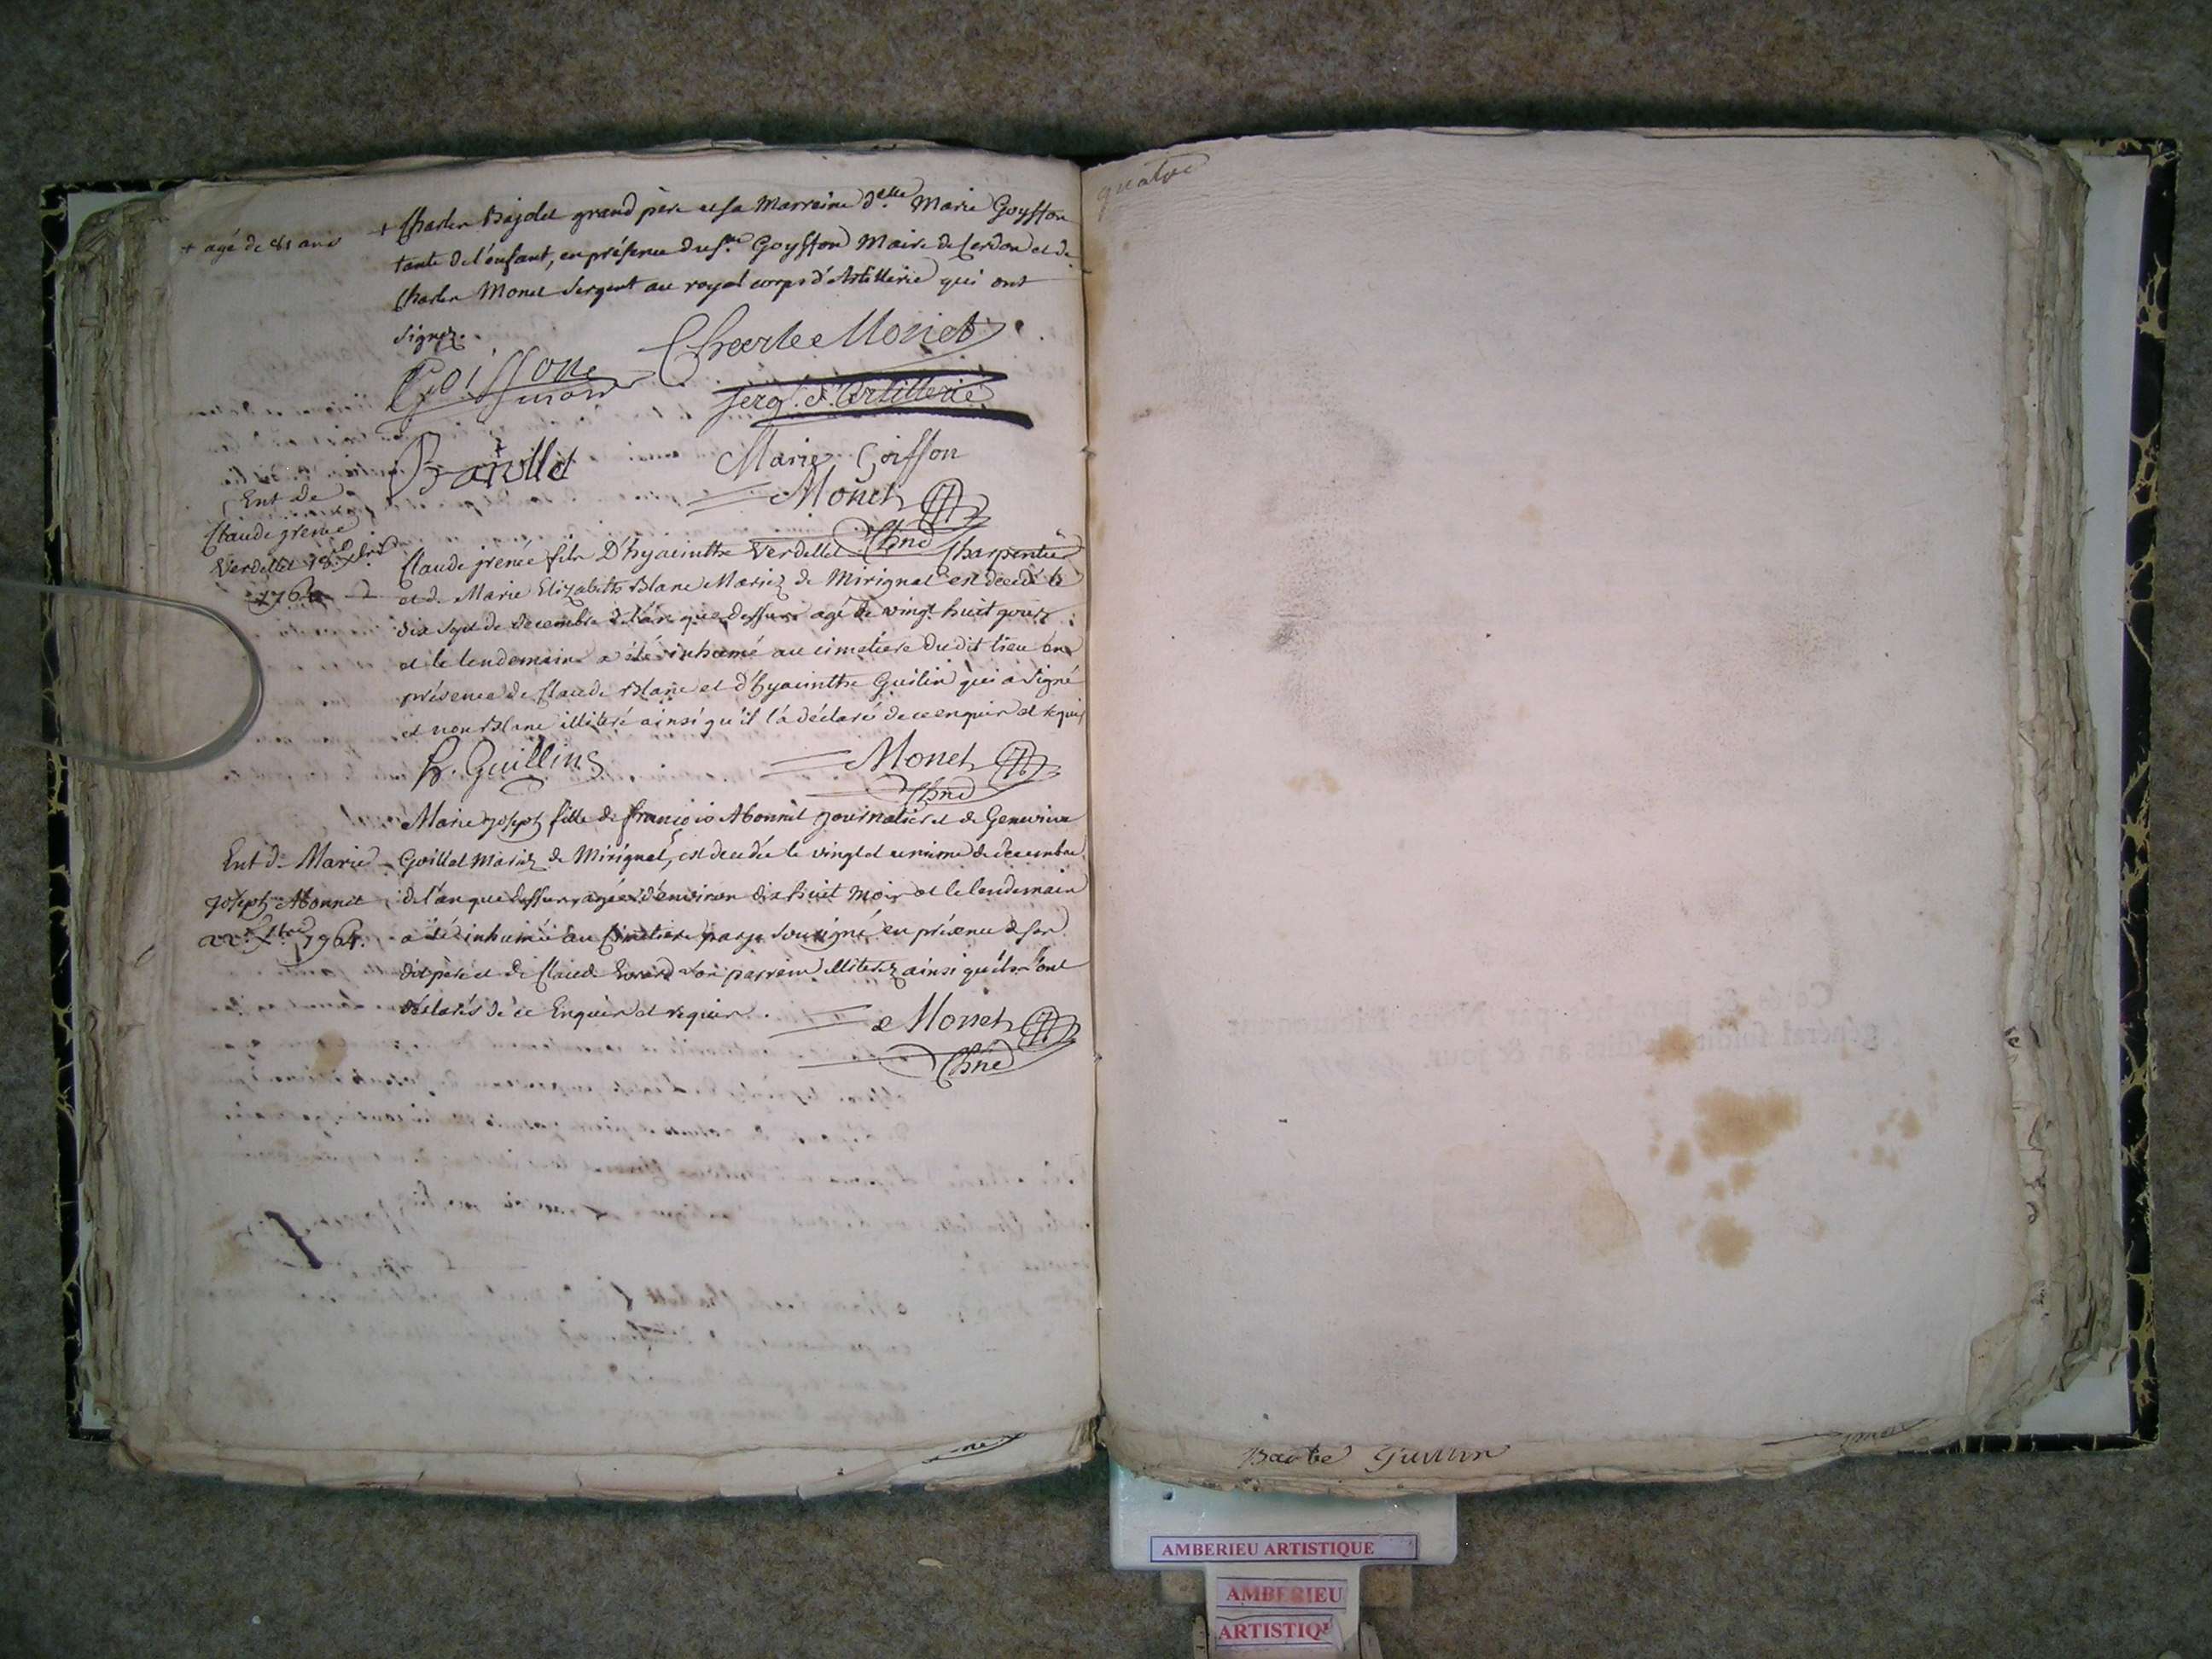 + agé de 81 ans
+ Charles Bajolet grand père et sa Marreine d.elle Marie Goyffon
tante de l'enfant, en présence du s.r Goyffon Maire de Cerdon et de
Charles Monet Sergent au royal corps d'Artillerie qui ont
signez.
Goiffon Charle Monet
serg.t d'Artillerie
Marie Goiffon
Monet
Ent de
Claude grenée
Verdellet 18.e
1764
Claude jrenée fils D'hyacinthe Verdellet Charpentier
et de Marie Elizabeth Blanc Mariez de Mirignat est décédé le
dix sept de decembre de l'an que dessus agé de vingt huit jours
et le lendemain a été inhumé au cimetiere dudit lieu en
présence de Claude Blanc et d'hyacinthe Guilin qui a signé
et non Blanc illiteré ainsi qu'il l'a déclaré de ce enquis et requis
h. Guillin Monet
Marie joseph fille de françois Abonnel journalier et de Genevieve
Ent de Marie
Goillet Mariez de Mirignat, est decedée le vingt et unieme de decembre
joseph Abonnel
de l'an que dessus, agée d'environ dix huit mois et le lendemain
1764.
a été inhumée au Cimetiere par je soussigné en présence de son
dit père et de Claude son parrein illiterez ainsi qu'ils l'ont
déclarés de ce Enquis et requis.
Monet
quatre
Barbe Guillin
AMBERIEU ARTISTIQUE
AMBERIEU
ARTISTIQ